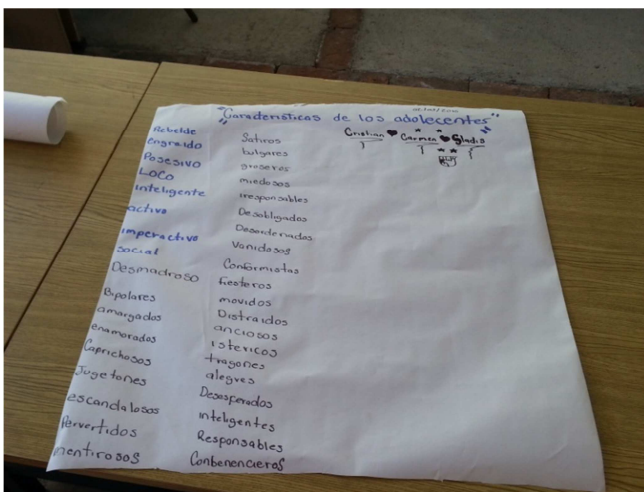 "Caracteristicas de los adolecentes"
Cristian ♥ Carmen ♥ Gladis
Rebelde
engraido
Posesivo
Loco
inteligente
activo
imperactivo
social
Desmadroso
Bipolares
amargados
enamorados
Caprichosos
Jugetones
escandalosos
Pervertidos
mentirosos
Satiros
bulgares
groseros
miedosos
iresponsables
Desabligados
Desordenados
Vanidosos
Conformistas
fiesteros
movidos
Distraidos
anciosos
istericos
tragones
alegres
Desesperados
inteligentes
Responsables
Conbenencieros